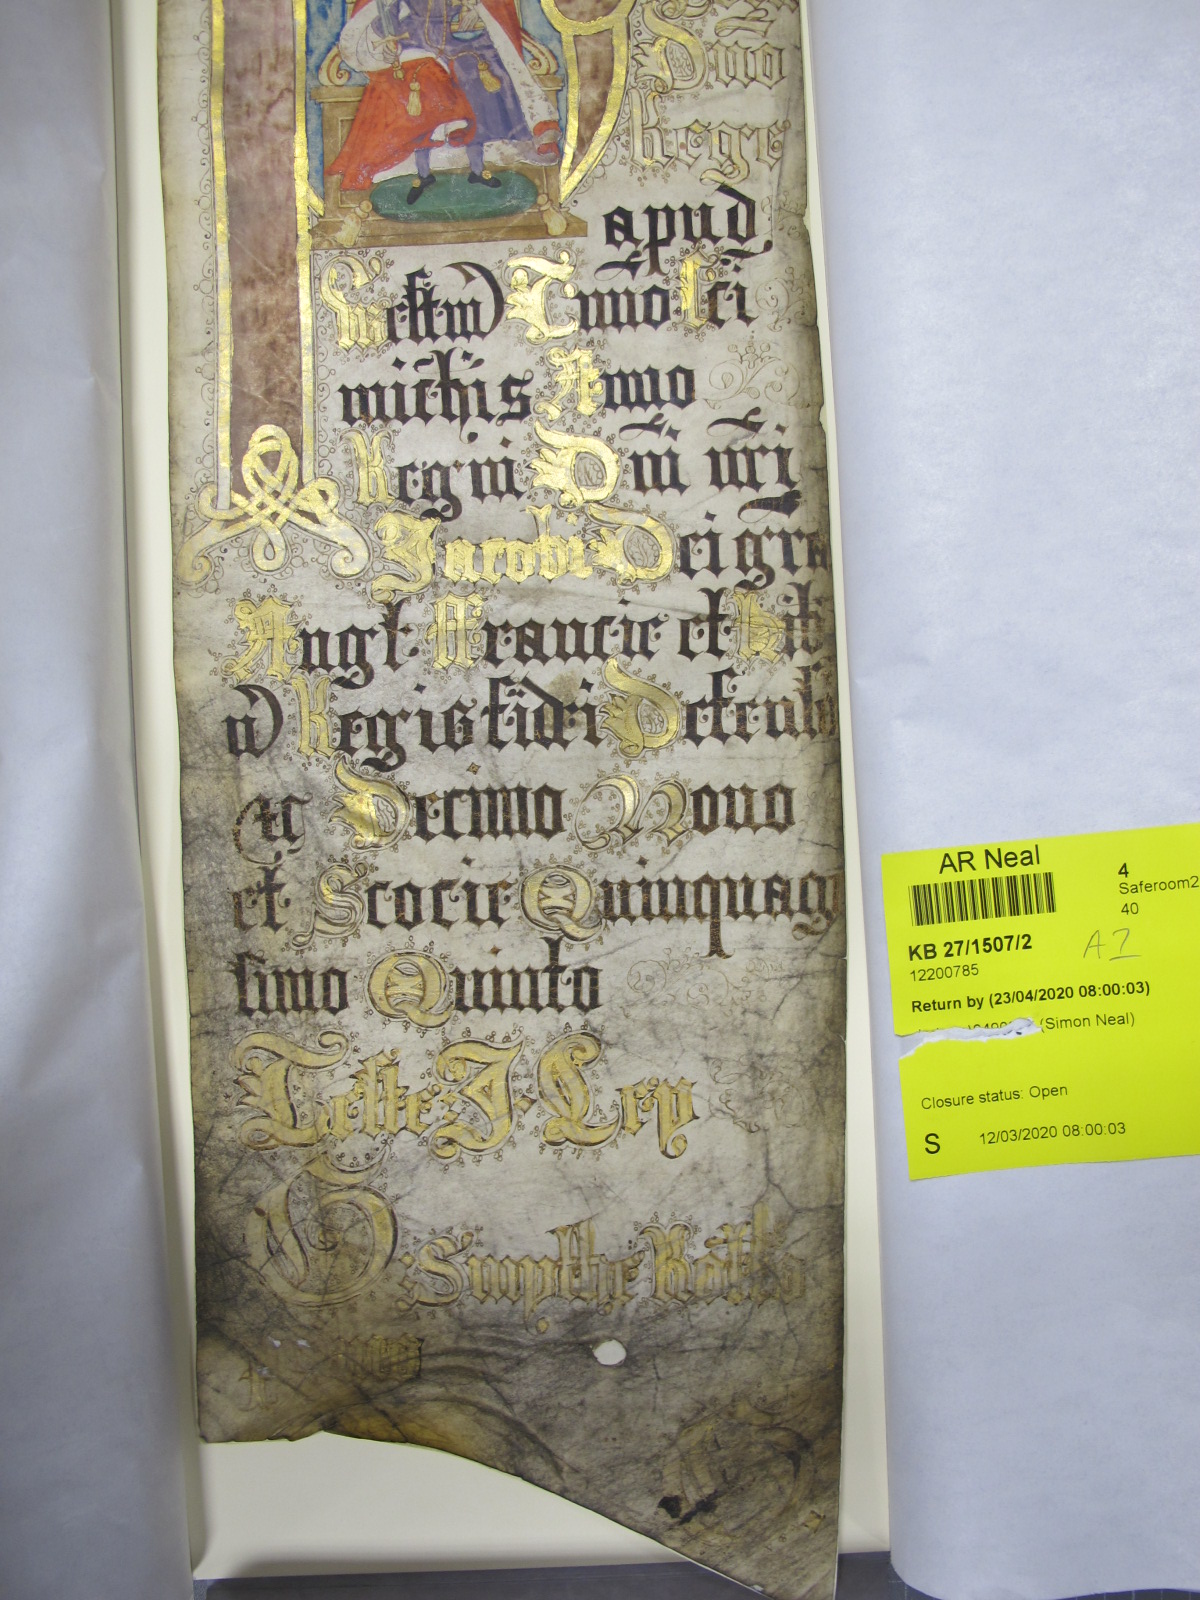 Dno
Rege
apud
Westm Tmino Sci
michis Anno
Regni Dni nri
Jacobi Dei gra
Angl Francie et Hib
n Regis fidei Defenso
etc Decimo Nono
et Scocie Quinquage
simo Quinto
Teste J Ley
G Smythe Rotlo
primo
AR Neal
4
Saferoom2
40
KB 27/1507/2
A2
12200785
Return by (23/04/2020 08:00:03)
(Simon Neal)
Closure status: Open
S 12/03/2020 08:00:03